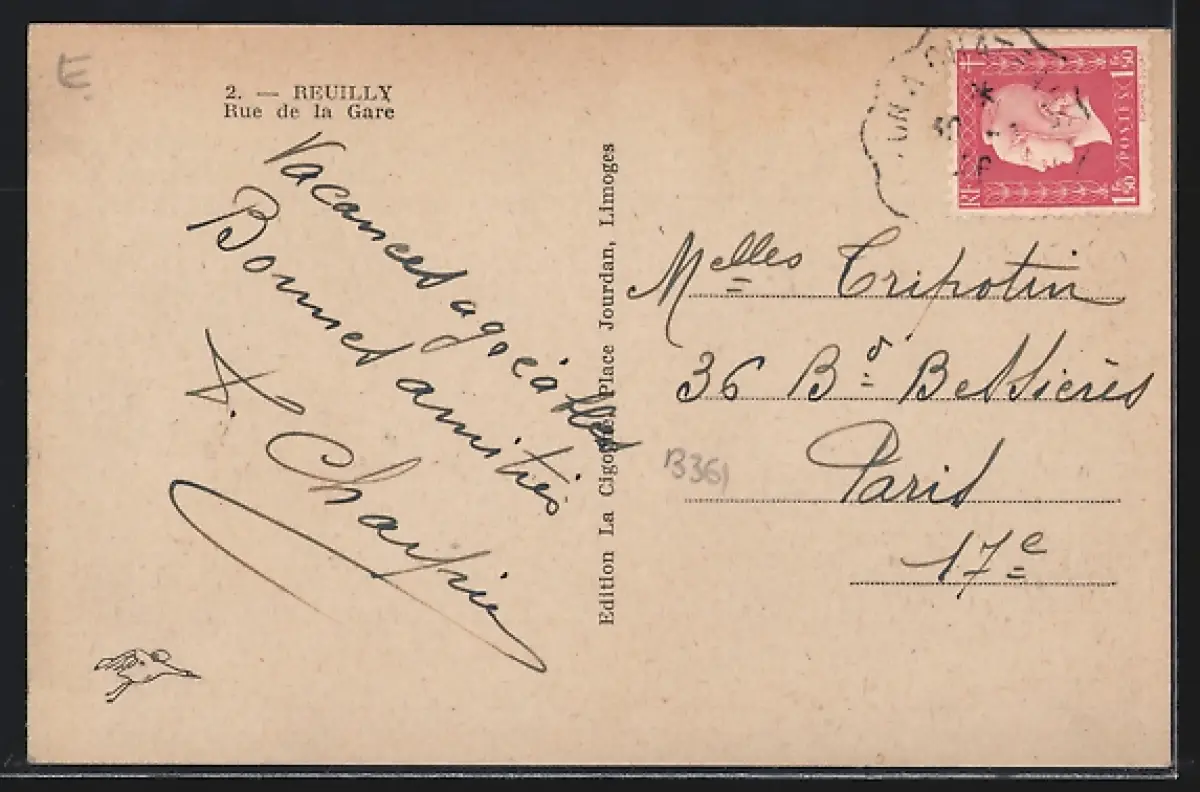 E
2. — REUILLY
Rue de la Gare
Vacances agréables
Bonnes amitiés
Charpie
Edition La Cigogne, Place Jourdan, Limoges
RF
1F50
POSTES
1F50
Melles Tripotin
36 Bd Bessières
B361
Paris
17e